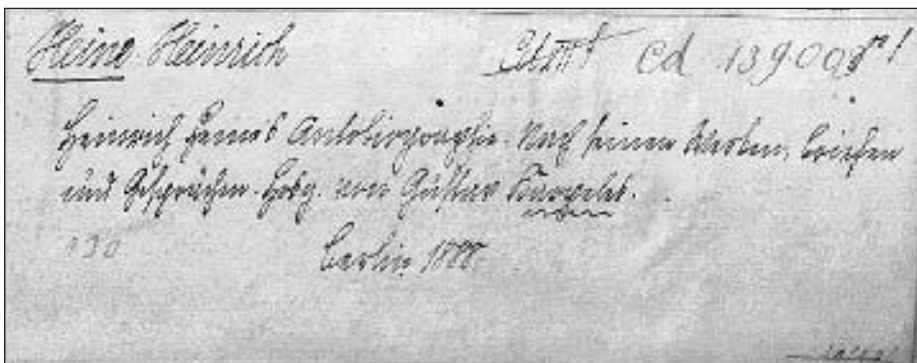 Heine Heinrich Cd 13900
Heinrich Heine's Autobiographie. Nach seinen Werken, Briefen
und Gesprächen. Hrsg. von Gustav Karpeles.
Berlin 1888